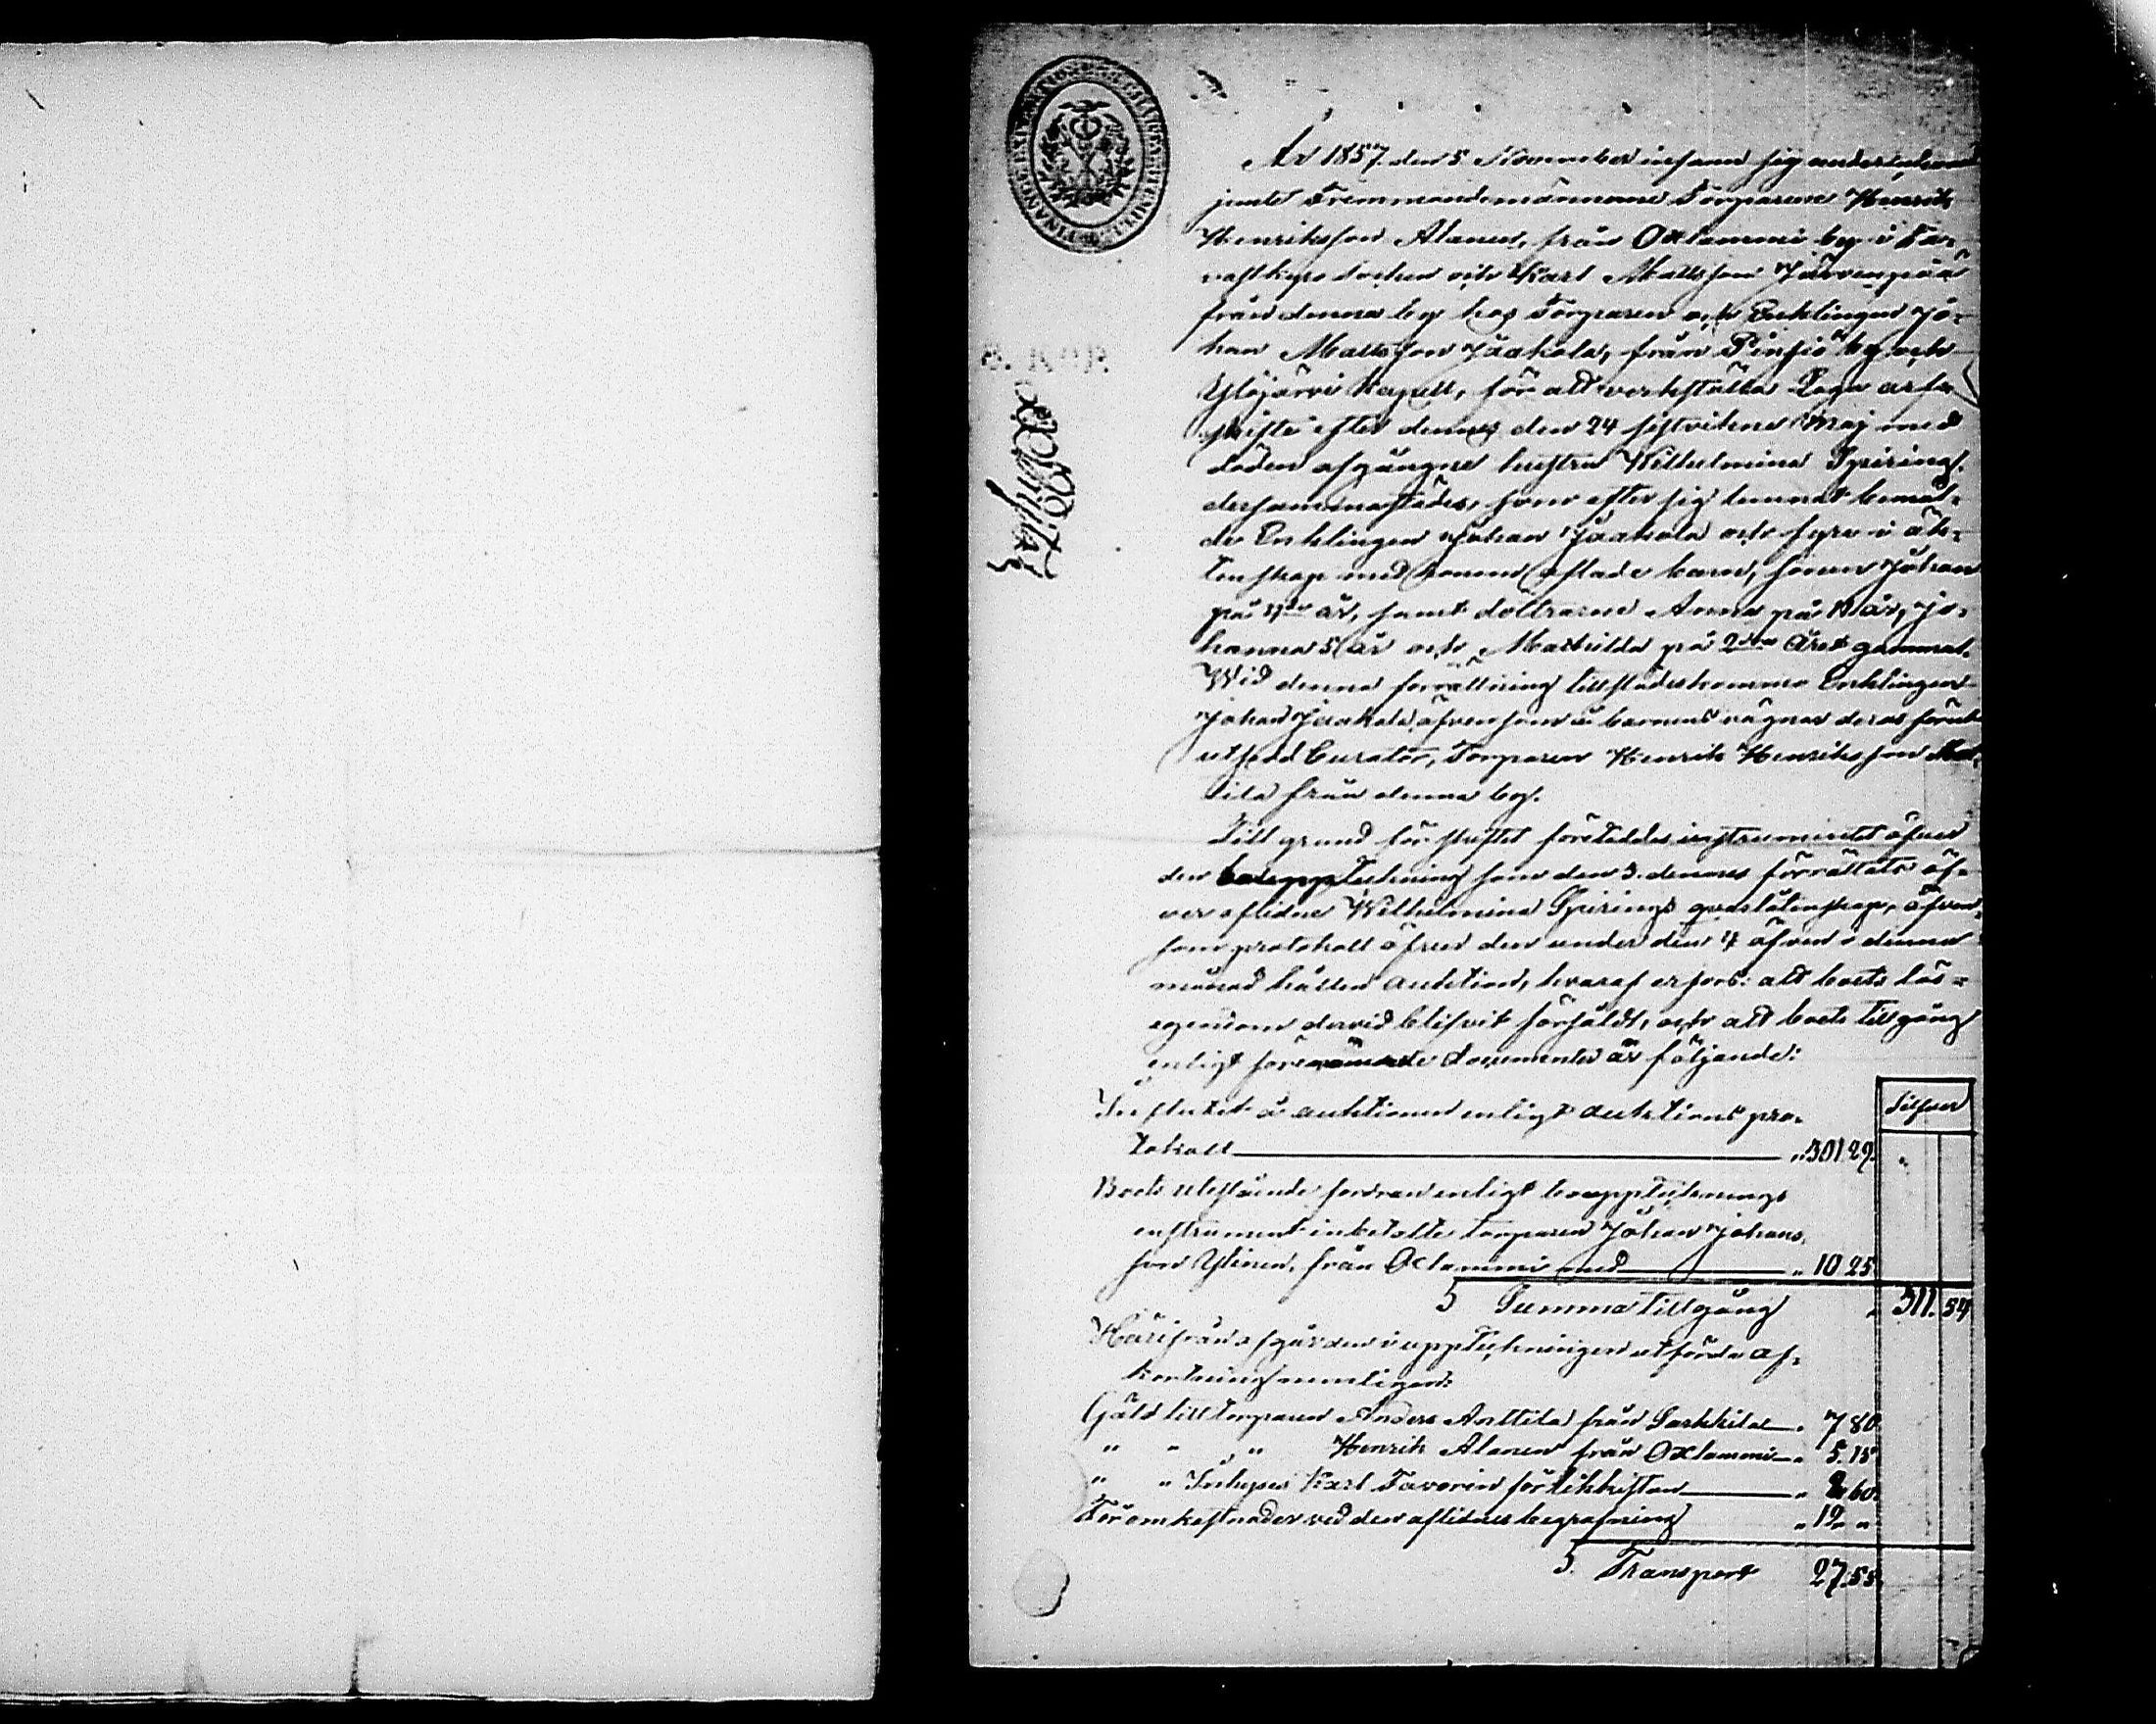 År 1857 den 5 November infann sig undertecknad
jemte Gremmansmännerne Torparene Henrik
Henriksson Alanen, från Oxlammi by i Ta-
vastkyro socken och Karl Mattsson Järvenpää
från denna by hos Torparen och Enklingen Jo-
han Mattsson Jaakola, från Pinsiö by och
Ylöjärvi Kapell, för att verkställa Laga arfs
skifte efter dennes den 24 sistvikne Maj med
döden afgångne hustru Wilhelmina Spirings
dersammastädes, som efter sig lemnat bemäl-
de Enklingen Johan Jaakola och fyra i äk-
tenskap med honom aflade barn, sonen Johan
på år, samt döttrarne Anna på 10 år, Jo-
hanna 5 år och Mathilda på 2dra året gammal.
Wid denna förrättning tillstädeskommo Enklingen
Johan Jaakola äfvensom å barnens vägnar deras förut
utsedd Curator, Torparen Henrik Henriksson Mat-
tila från denna by.
Till grund för skiftet företeddes instrumentet öfver
den bouppteckning som den 3. dennes förrättats öf-
ver aflidne Wilhelmina Spirings qvarlåtenskap, äfven-
som protokoll öfver den under den 4 äfven i denna
månad hållen auktion, hvaraf erfors: att boets lös-
egendom dervid blifvit försåldt, och att boets tillgång
enligt förenämnde documenter är följande:
Silfver
Influtet å auktionen enligt auktions pro-
tokoll „ 301 29.
Boets utestående fordran enligt bouppteknings
instrument inbetalte torparen Johan Johans-
son Ylinen, från Oxlammi med „ 10 25
S Summa tillgång „ 311. 54
Härifrån afgår den i uppteckningen utförda af-
kortning nemligen:
Gäld till torparen Anders Anttila från Sarkkila „ 7 80.
„ „ „ Henrik Alanen från Oxlammi „ 5. 15
„ „ Inhyses Karl Tavorin för likkistan „ 2 60.
För omkostnader ved den aflidnes begrafning „ 12 „
S. Transport 27. 55